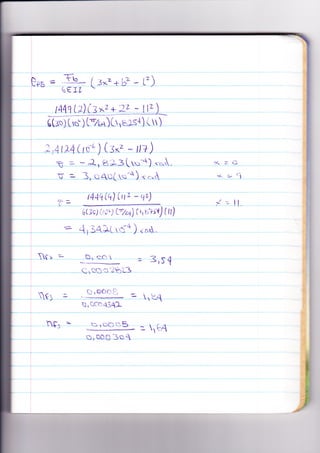 θFB = Fb / 6EIl (3x² + b² - l²)
1449(2)(3x² + 2² - 11²)
6(30)(10⁶)(π/64)(1,825⁴)(11)
2,4124(10⁻⁶)(3x² - 117)
θ = -2,823(10⁻⁴) rad. x = 0
θ = 3,040(10⁻⁴) rad x = 9
1449(9)(11² - 9²) x = 11
6(30)(10⁶)(π/64)(1,825⁴)(11)
= 4,342(10⁻⁴) rad.
nfs = 0,001 / 0,0002823 = 3,54
nfs = 0,0008 / 0,0004342 = 1,84
nfs = 0,0005 / 0,000304 = 1,64